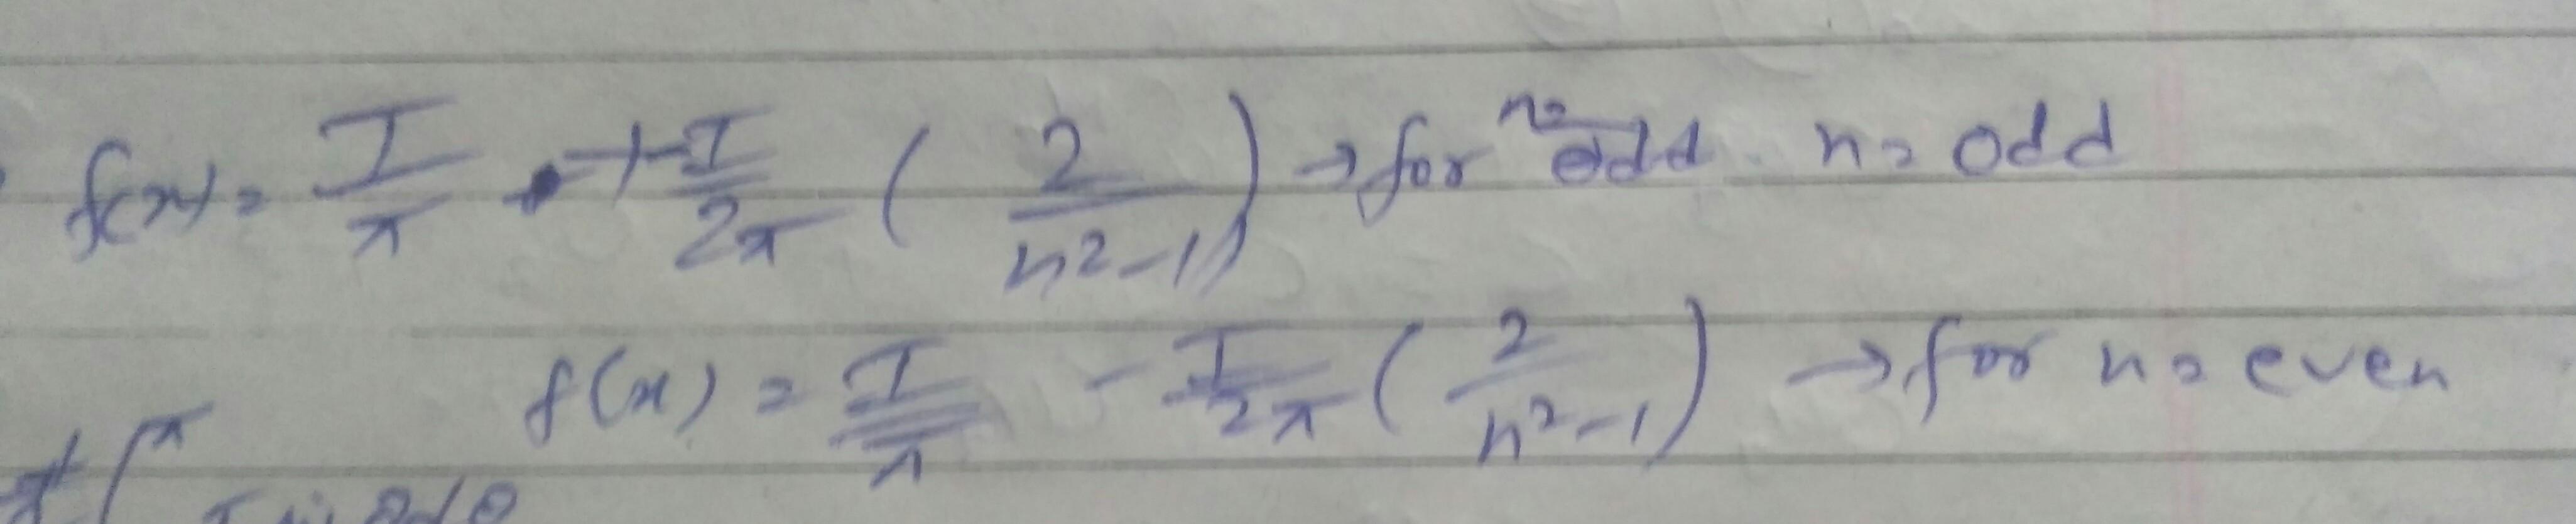 f(x) = I/π + I/2π ( 2/(n²-1) ) → for n = odd
f(x) = I/π - I/2π ( 2/(n²-1) ) → for n = even
∫π